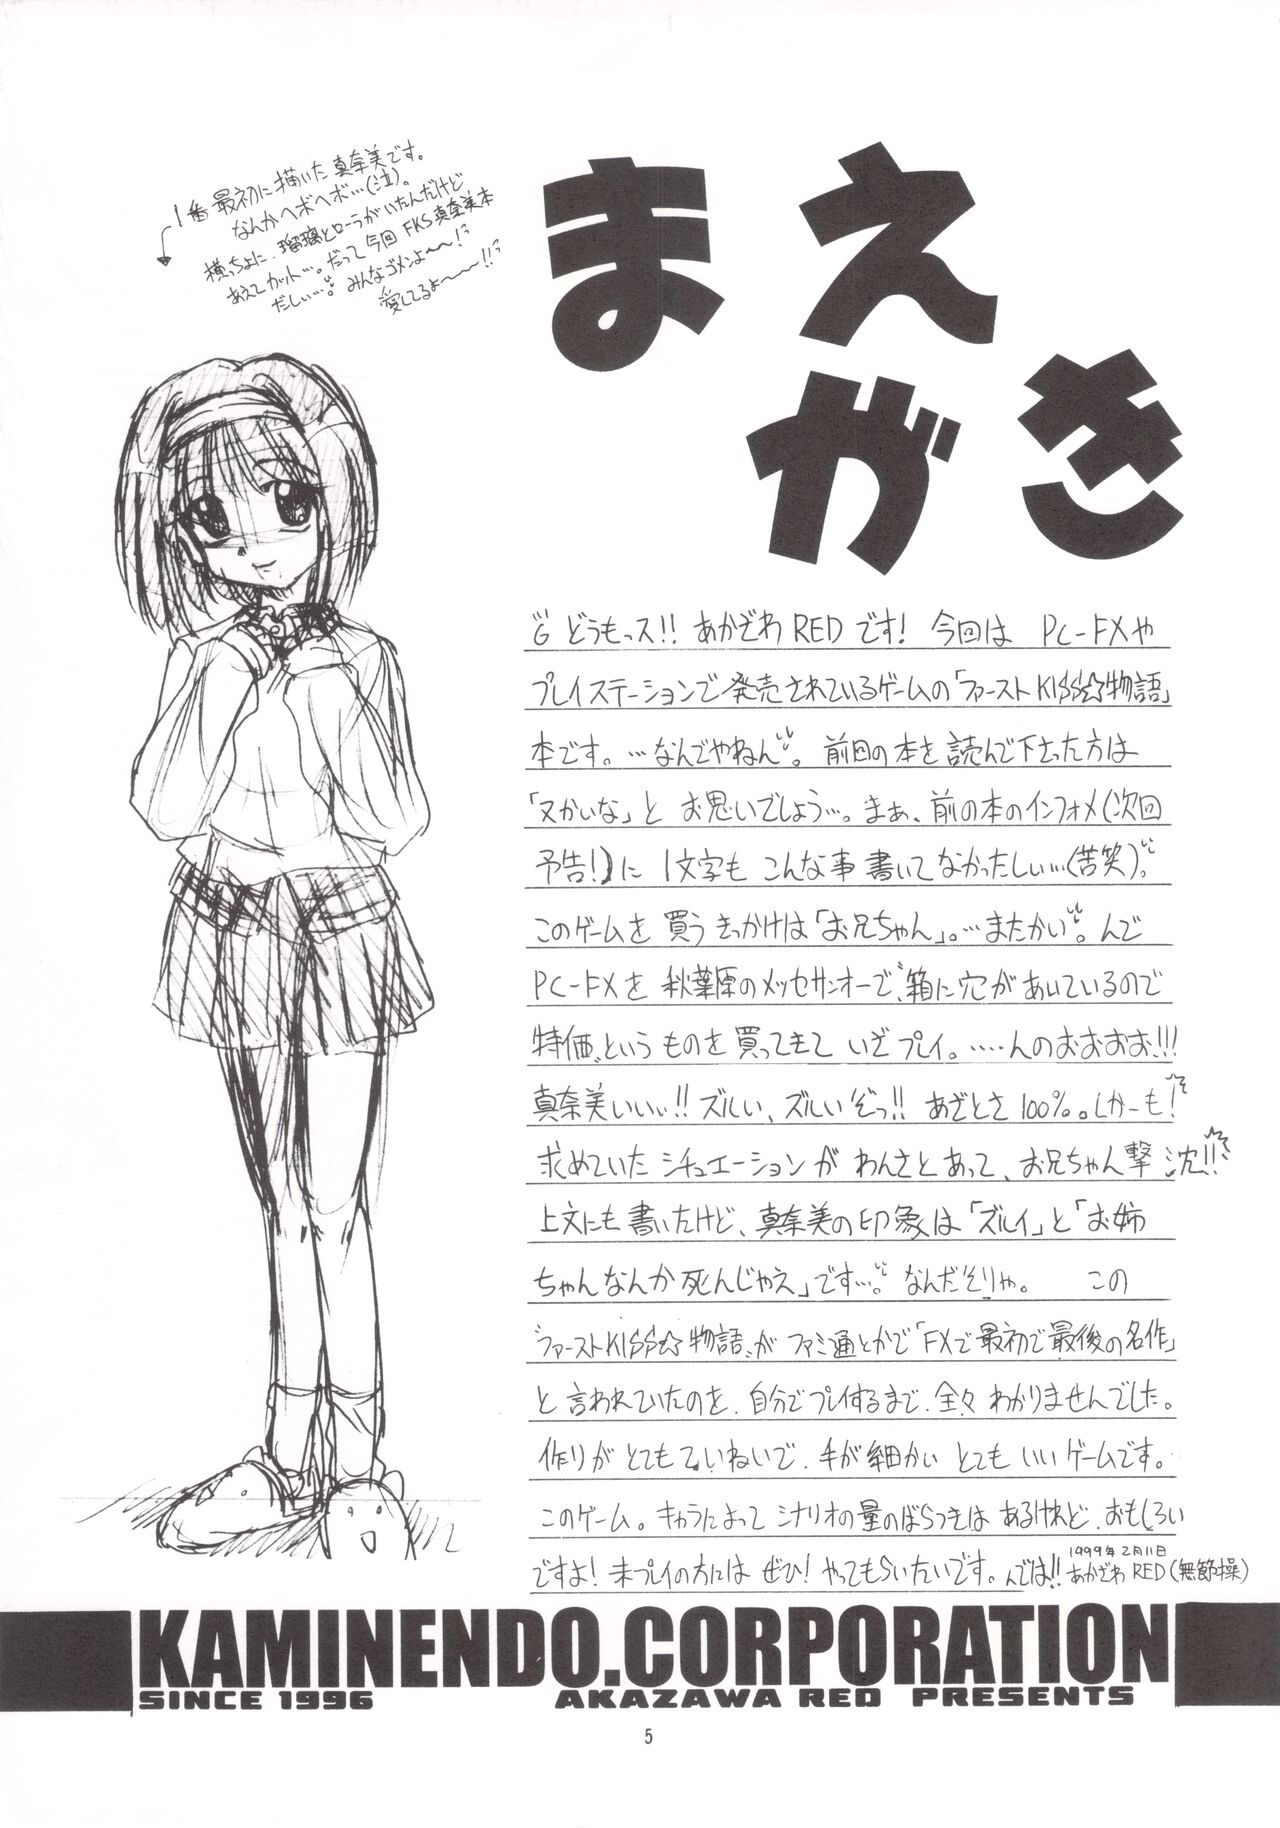 まえ
がき
1番最初に描いた真奈美です。
なんかヘボヘボ…(泣)。
横っちょに、瑠璃とローラがいたんだけど
あえてカット…。だって今回FKS真奈美本
だしぃ…。みんなゴメンよ〜〜!
愛してるよ〜〜〜!!
どうもっス!! あかざわREDです! 今回は PC-FXや
プレイステーションで発売されているゲームの「ファーストKISS☆物語」
本です。…なんでやねん。前回の本を読んで下さった方は
「又かいな」と お思いでしょう…。まぁ、前の本のインフォメ(次回
予告!)に 1文字も こんな事書いてなかったしぃ…(苦笑)。
このゲームを 買うきっかけは「お兄ちゃん」。…またかい。んで
PC-FXを 秋葉原のメッセサンオーで、“箱に穴があいているので
特価”というものを買ってきて いざプレイ。……んのおおおお!!!
真奈美いいぃ!! ズルい、ズルいぞっ!! あざとさ100%。しかーも!
求めていた シチュエーションが わんさとあって、お兄ちゃん撃沈!!
上文にも書いたけど、真奈美の印象は「ズルイ」と「お姉
ちゃんなんか死んじゃえ」です…。なんだそりゃ。 この
“ファーストKISS☆物語”が ファミ通とかで「FXで最初で最後の名作」
と 言われていたのを、自分でプレイするまで、全々 わかりませんでした。
作りが とてもていねいで、手が細かい とても いいゲームです。
このゲーム。キャラによって シナリオの量のばらつきは あるけれど、おもしろい
ですよ! 未プレイの方には ぜひ! やってもらいたいです。んでは!!
1999年2月11日
あかざわ RED(無節操)
KAMINENDO.CORPORATION
SINCE 1996 AKAZAWA RED PRESENTS
5